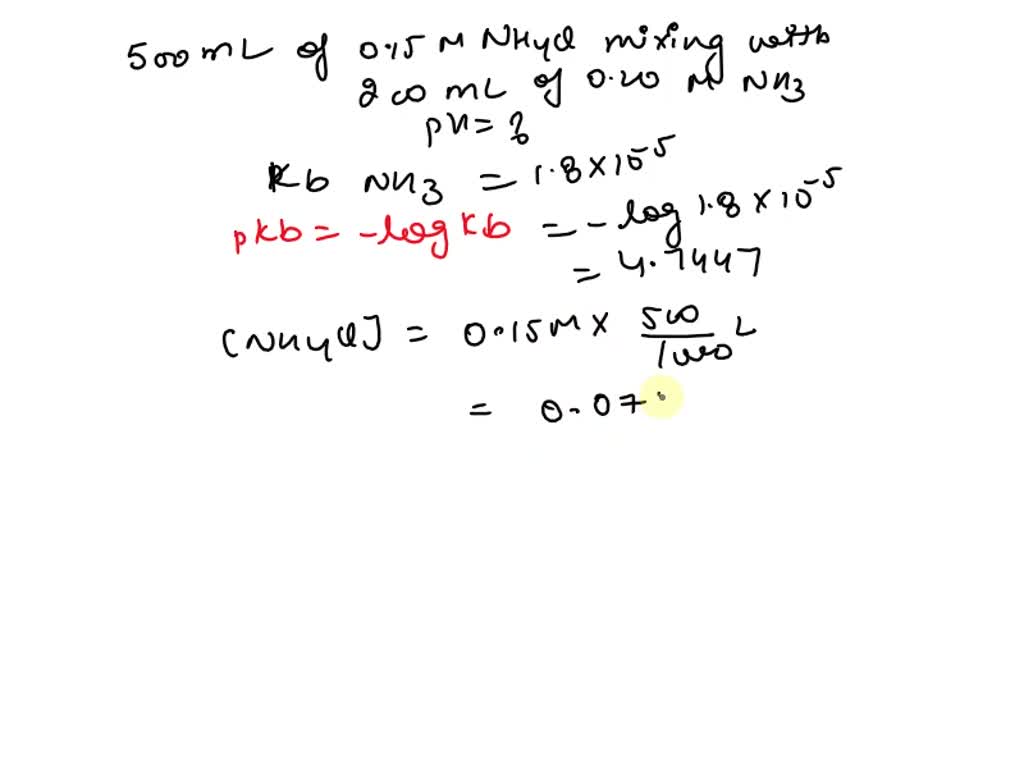 500 mL of 0.15 M NH4Cl mixing with
200 mL of 0.20 M NH3
pH = ?
Kb NH3 = 1.8 × 10-5
pKb = -log Kb = -log 1.8 × 10-5
= 4.7447
[NH4Cl] = 0.15M × 500/1000 L
= 0.07